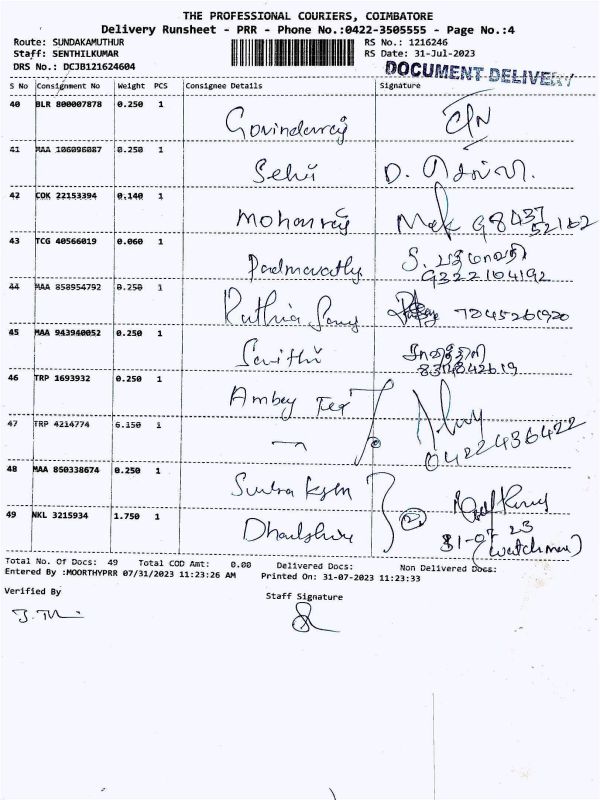 THE PROFESSIONAL COURIERS, COIMBATORE
Delivery Runsheet - PRR - Phone No.:0422-3505555 - Page No.:4
Route: SUNDAKAMUTHUR RS No.: 1216246
Staff: SENTHILKUMAR RS Date: 31-Jul-2023
DRS No.: DCJB121624604 DOCUMENT DELIVERY
S No Consignment No Weight PCS Consignee Details Signature
40 BLR 800007878 0.250 1
Govindaraj
41 MAA 106096087 0.250 1
D.
42 COK 22153394 0.140 1
Mohanraj 98437 52162
43 TCG 40566019 0.060 1
Padmavathy 9322164192
44 MAA 858954792 0.250 1
7245261920
45 MAA 943940052 0.250 1
46 TRP 1693932 0.250 1
Ambey Tex
47 TRP 4214774 6.150 1
0422436422
48 MAA 850338674 0.250 1
49 NKL 3215934 1.750 1
31-07 23
(watchman)
Total No. Of Docs: 49 Total COD Amt: 0.00 Delivered Docs: Non Delivered Docs:
Entered By :MOORTHYPRR 07/31/2023 11:23:26 AM Printed On: 31-07-2023 11:23:33
Verified By Staff Signature